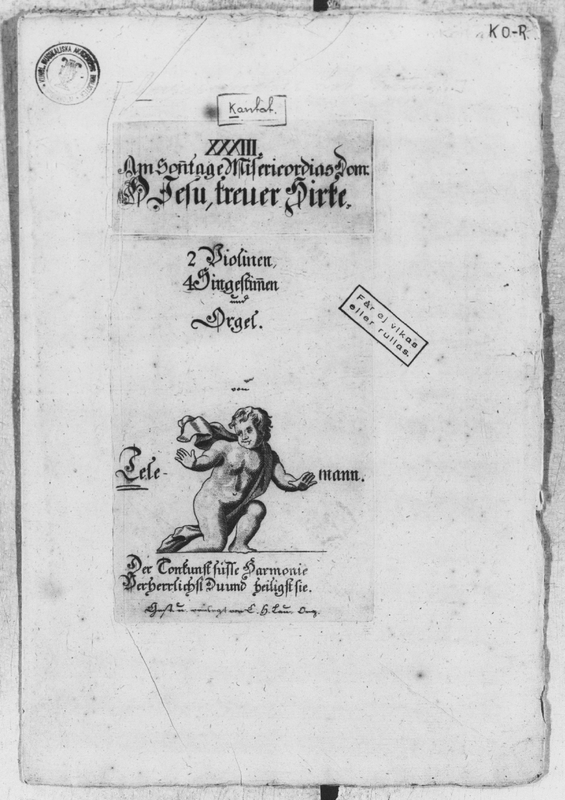 KO-R
KONGL. MUSIKALISKA AKADEMIENS
Kantat.
XXXIII.
Am Soñtage Misericordias Dom:
O Jesu, treuer Hirte.
2 Violinen,
4 Singestim̄en
und
Orgel.
von
Får ej vikas
eller rullas.
Tele- mann.
Der Tonkunst süsse Harmonie
Verherrlichst Du und heiligst sie.
C. H. Lau.